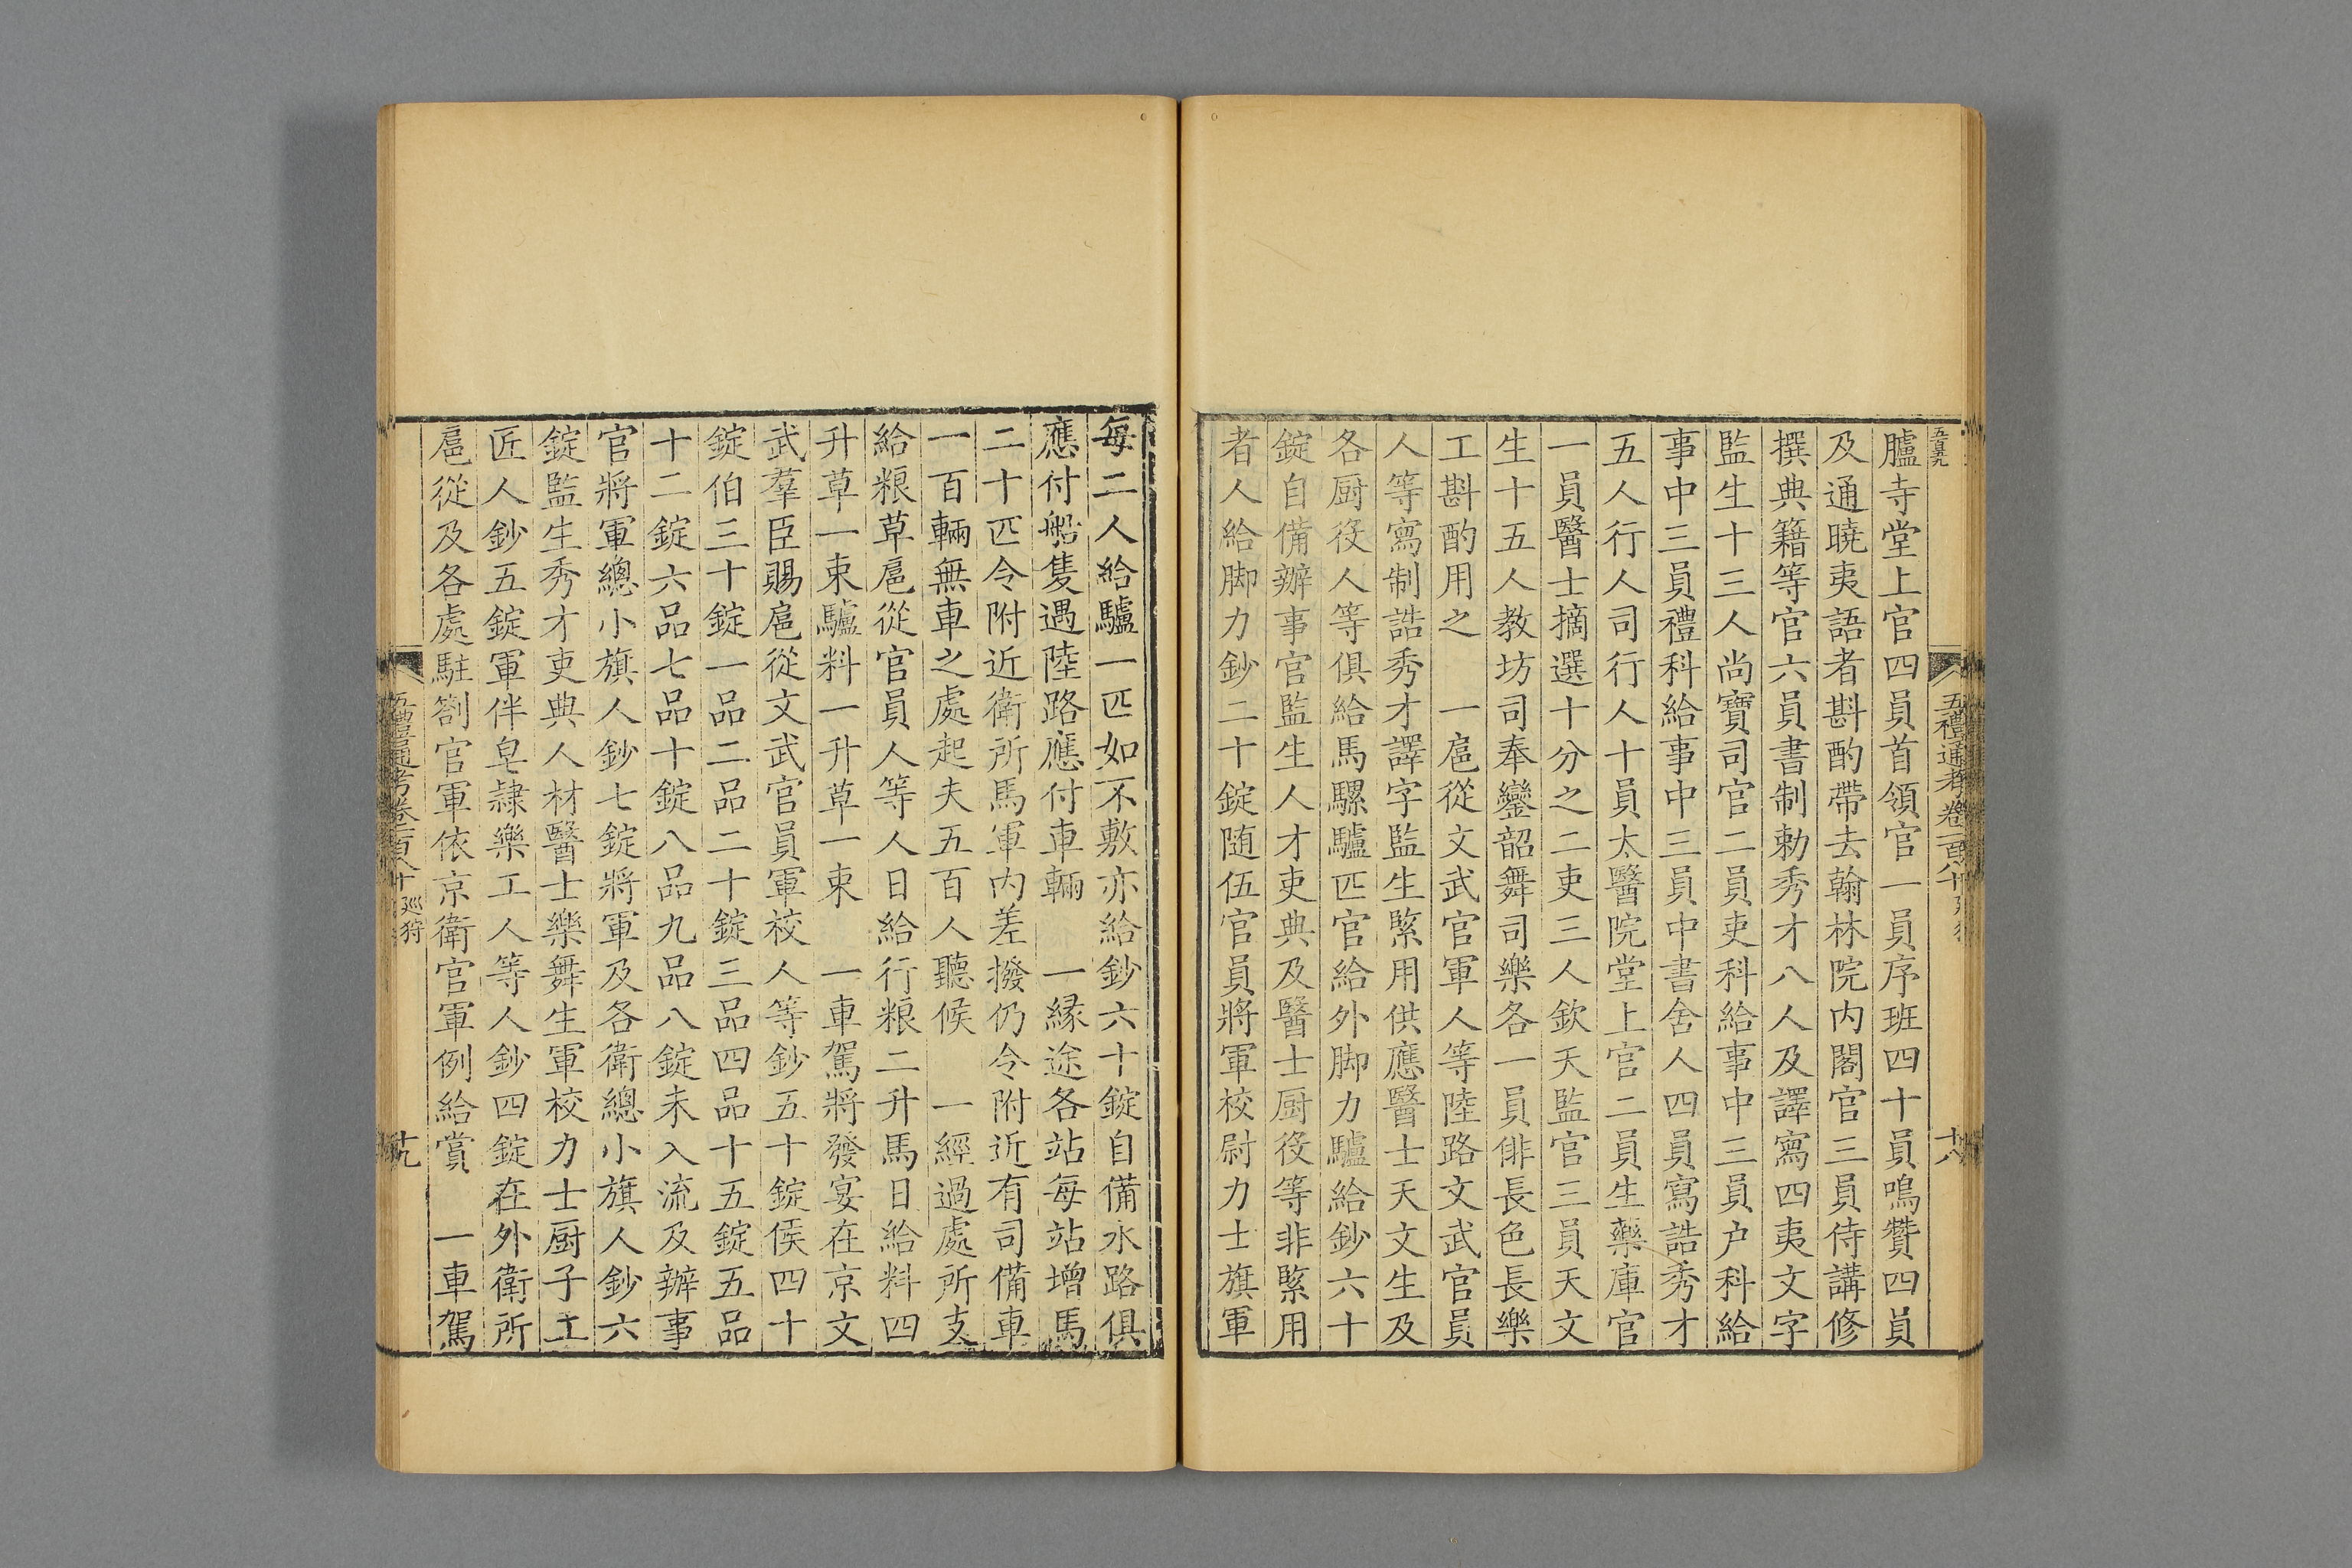 五百九
臚寺堂上官四員首領官一員序班四十員鳴贊四員
及通曉夷語者斟酌帶去翰林院内閣官三員侍講修
撰典籍等官六員書制勅秀才八人及譯寫四夷文字
監生十三人尚寶司官二員吏科給事中三員户科給
事中三員禮科給事中三員中書舍人四員寫誥秀才
五人行人司行人十員太醫院堂上官二員生藥庫官
一員醫士摘選十分之二吏三人欽天監官三員天文
生十五人教坊司奉鑾韶舞司樂各一員俳長色長樂
工斟酌用之　一扈從文武官軍人等陸路文武官員
人等寫制誥秀才譯字監生緊用供應醫士天文生及
各厨役人等俱給馬騾驢匹官給外脚力驢給鈔六十
錠自備辦事官監生人才吏典及醫士厨役等非緊用
者人給脚力鈔二十錠随伍官員將軍校尉力士旗軍
五禮通考卷一百八十
十八
每二人給驢一匹如不敷亦給鈔六十錠自備水路俱
應付船隻遇陸路應付車輛　一縁途各站每站增馬
二十匹令附近衛所馬軍内差撥仍令附近有司備車
一百輛無車之處起夫五百人聽候　一經過處所支
給粮草扈從官員人等人日給行粮二升馬日給料四
升草一束驢料一升草一束　一車駕將發宴在京文
武羣臣賜扈從文武官員軍校人等鈔五十錠侯四十
錠伯三十錠一品二品二十錠三品四品十五錠五品
十二錠六品七品十錠八品九品八錠未入流及辦事
官將軍總小旗人鈔七錠將軍及各衛總小旗人鈔六
錠監生秀才吏典人材醫士樂舞生軍校力士厨子工
匠人鈔五錠軍伴皂隷樂工人等人鈔四錠在外衛所
扈從及各處駐劄官軍依京衛官軍例給賞　一車駕
五禮通考卷一百八十　巡狩
十九